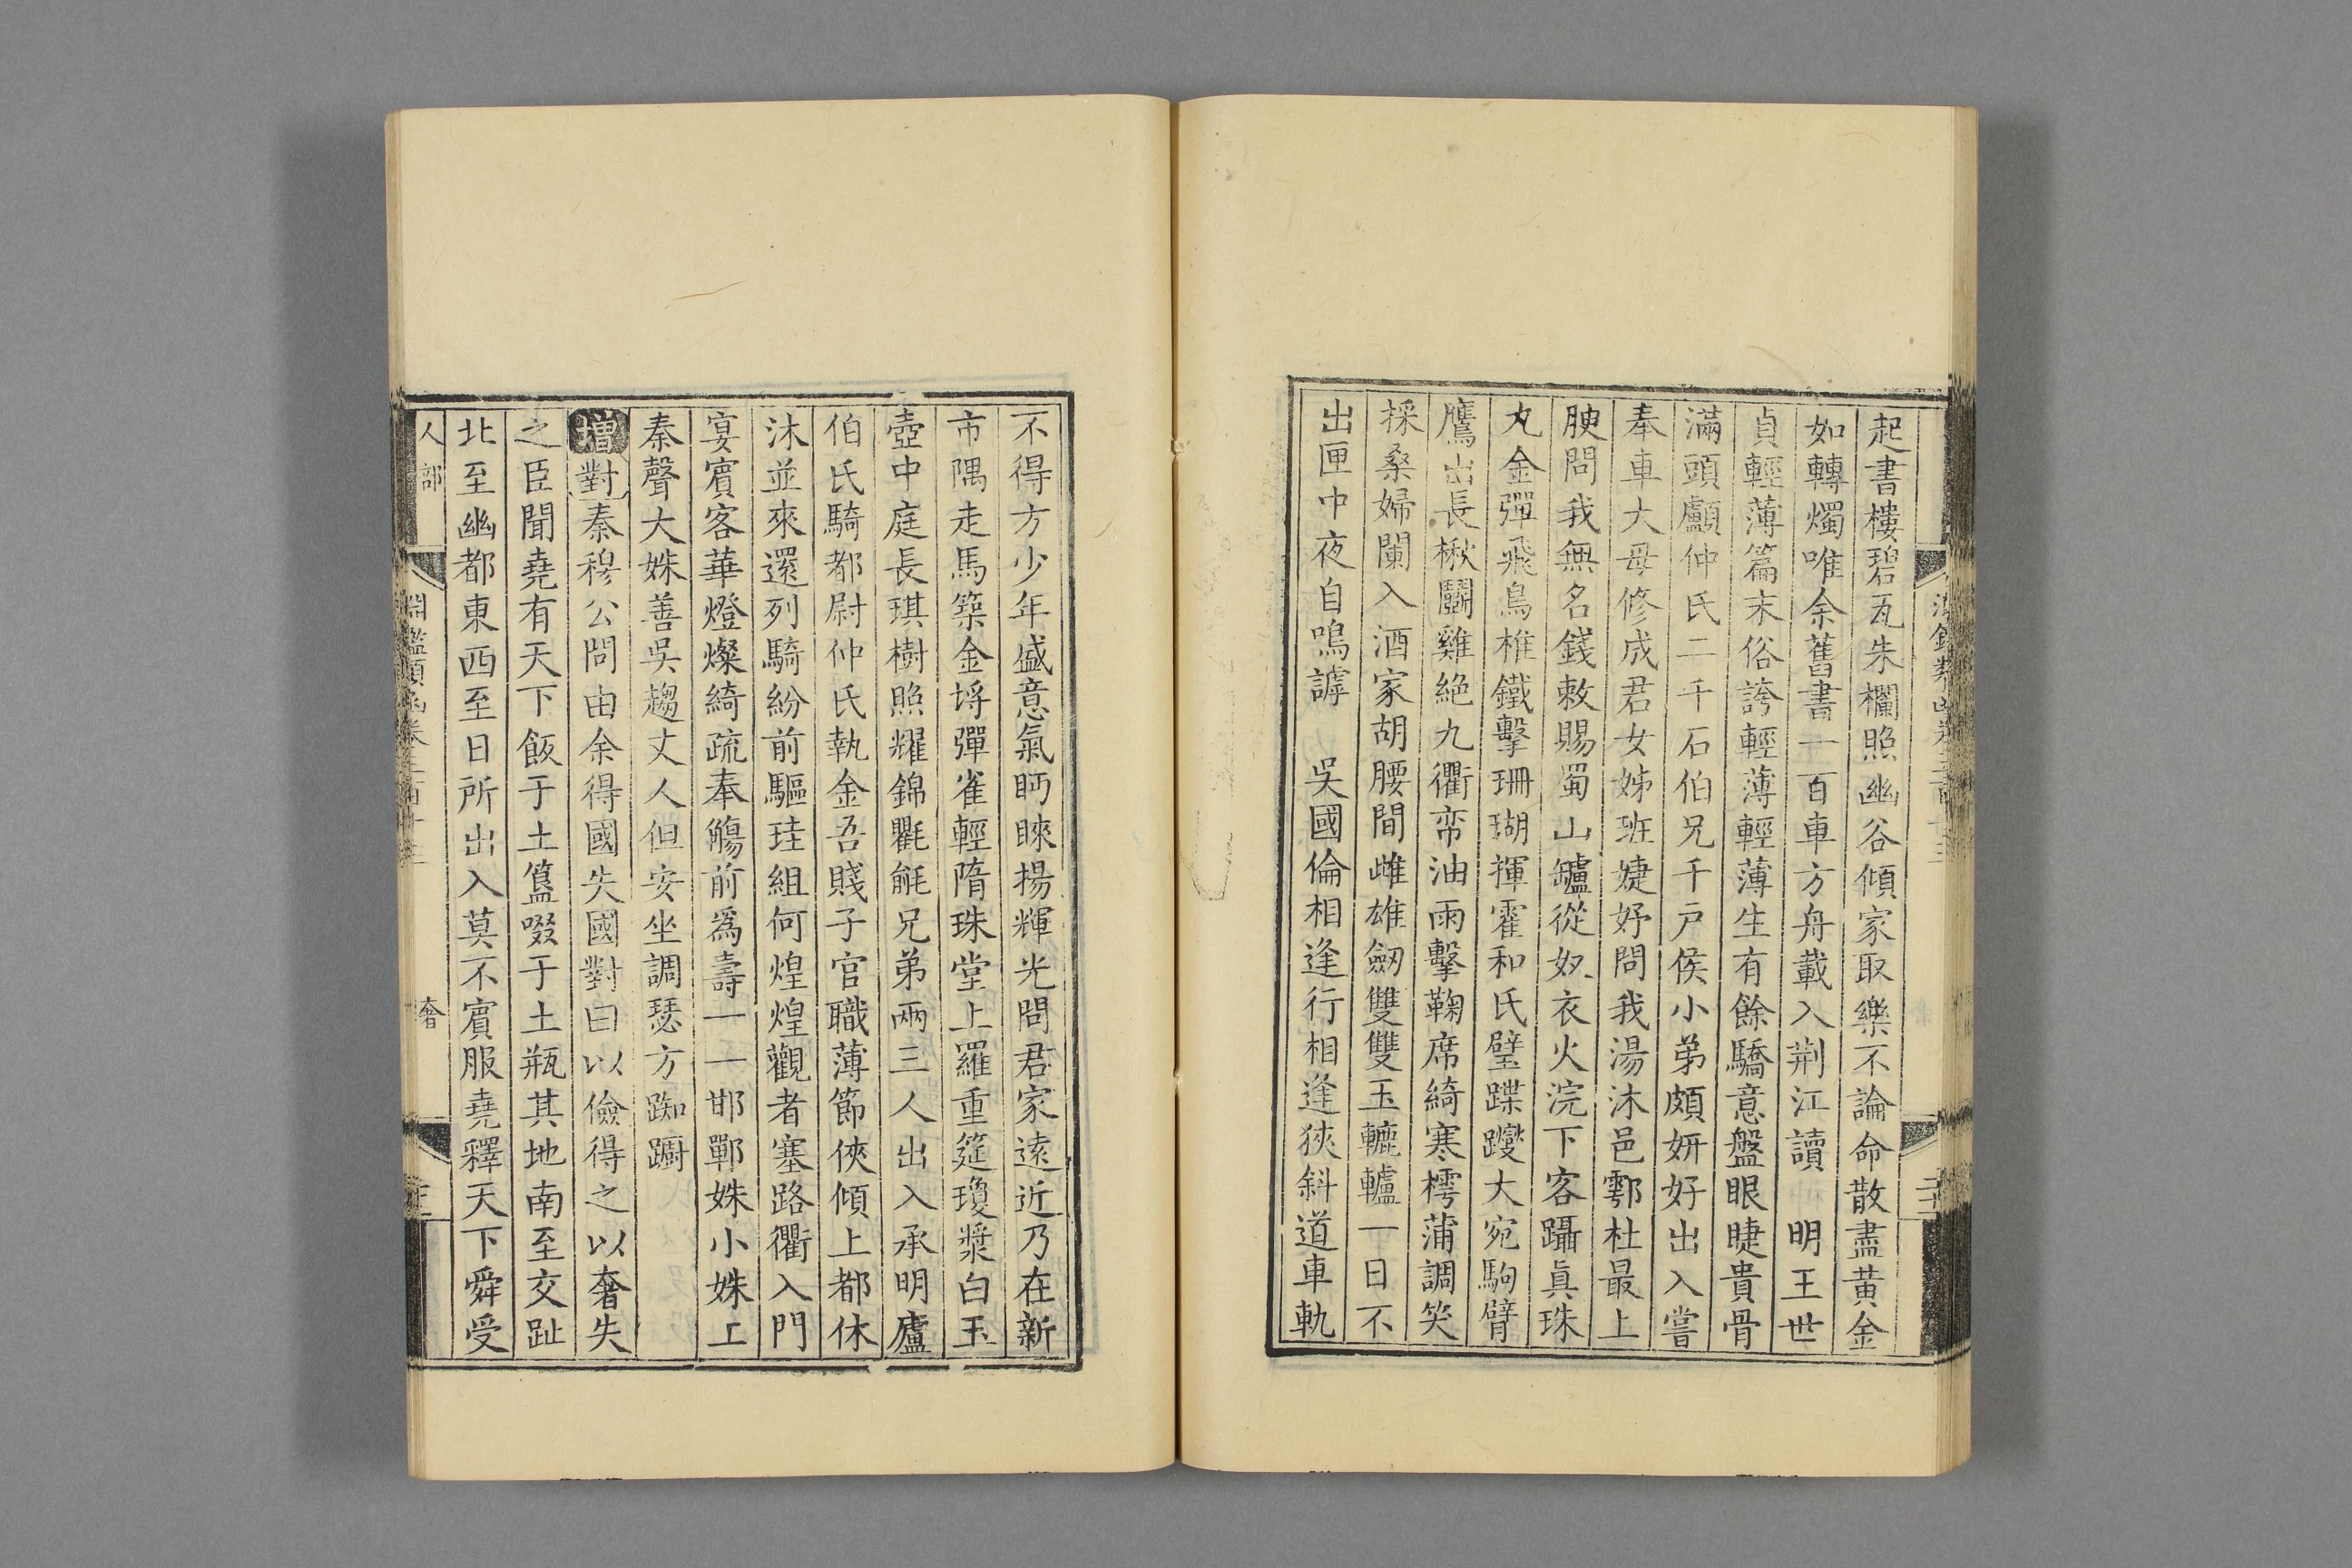 起書樓碧瓦朱欄照幽谷傾家取樂不論命散盡黄金
如轉燭唯余舊書一百車方舟載入荆江讀 明王世
貞輕薄篇末俗誇輕薄輕薄生有餘驕意盤眼睫貴骨
滿頭顱仲氏二千石伯兄千戸侯小弟頗妍好出入嘗
奉車大母修成君女姊班婕妤問我湯沐邑鄠杜最上
腴問我無名錢敕賜蜀山罏從奴衣火浣下客躡眞珠
丸金彈飛鳥椎鐵擊珊瑚揮霍和氏璧蹀躞大宛駒臂
鷹出長楸鬭雞絕九衢帟油雨擊鞠席綺寒樗蒲調笑
採桑婦闌入酒家胡腰間雌雄劒雙雙玉轆轤一日不
出匣中夜自鳴謼 吳國倫相逢行相逢狹斜道車軌
不得方少年盛意氣眄睞揚輝光問君家遠近乃在新
市隅走馬築金埒彈雀輕隋珠堂上羅重筵瓊漿白玉
壺中庭長琪樹照耀錦氍毹兄弟兩三人出入承明廬
伯氏騎都尉仲氏執金吾賤子官職薄節俠傾上都休
沐並來還列騎紛前驅珪組何煌煌觀者塞路衢入門
宴賓客華燈燦綺疏奉觴前爲壽一一邯鄲姝小姝工
秦聲大姝善吳趨丈人但安坐調瑟方踟躕
增對秦穆公問由余得國失國對曰以儉得之以奢失
之臣聞堯有天下飯于土簋啜于土瓶其地南至交趾
北至幽都東西至日所出入莫不賓服堯釋天下舜受
人部 淵鑑類函卷三百十三 奢